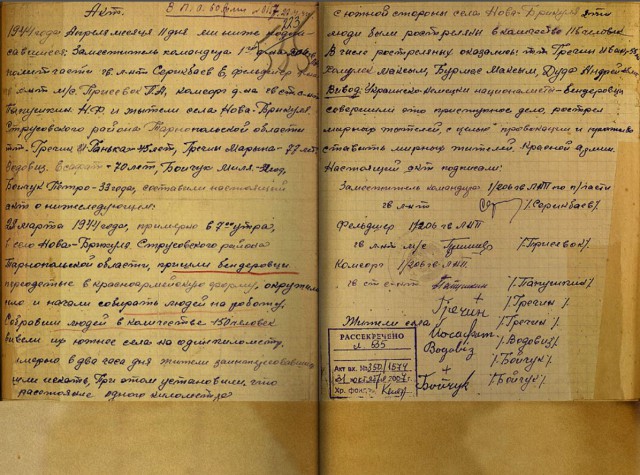 Акт.
1944 года Апреля месяца 11 дня мы ниже подпи-
савшиеся: Заместитель командира 1
по полит части гв. л-нт Соринбаев, фельдшер
гв л-нт м/с. Присевок П.А, комсорг д-на гв ст с-нт
Папушкин Н.Ф. и жители села Нова-Брикуля.
Струсовского района Тарнопольской области
т.т. Тречин Танька-45 лет, Тречин Марына-77 лет
Водовиз Иосафат-70 лет, Бойчук Миля- год,
Бойчук Петро-33 года, составили настоящий
акт о нижеследующем:
28 марта 1944 года, примерно в 7 утра,
в село Нова-Брикуля Струсовского района
Тарнопольской области, пришли бендеровцы
переодетые в красноармейскую форму, окружили
село и начали собирать людей на работу,
Собравши людей в количестве 150 человек
вывели их южнее села на один километр.
примерно в два часа дня жители заинтересовавшись
пошли искать, При этом установили, что
расстояние одного километра
с южной стороны села Нова-Брикуля эти
люди были ростреляны в количестве 116 человек
В числе ростреляных оказались: т.т. Тречин Иван,
Максым, Бурмас Максым, Дудо Андрей
Вывод: Украинско-немецки националисты-бендеровцы
совершили это приступное дело, рострел
мирных жителей, с целью провокации и противо-
ставить мирных жителей. Красной армии.
Настоящий акт подписали:
Заместитель командира 1/206 гв ЛАП по п/части
гв л-нт /Соринбаев/
Фельдшер 1/206 гв ЛАП
гв л-нт м/с /Присевок/
Комсорг 1/206 гв ЛАП.
гв ст с-нт Папушкин /Папушкин/
+ /Тречин/
Жители села Тречин /Тречин/
Иосафат Водовиз /Водовиз/
+ /Бойчук/
Бойчук /Бойчук/
РАССЕКРЕЧЕНО
Акт вх. №
2007 г.
Хр. фондов